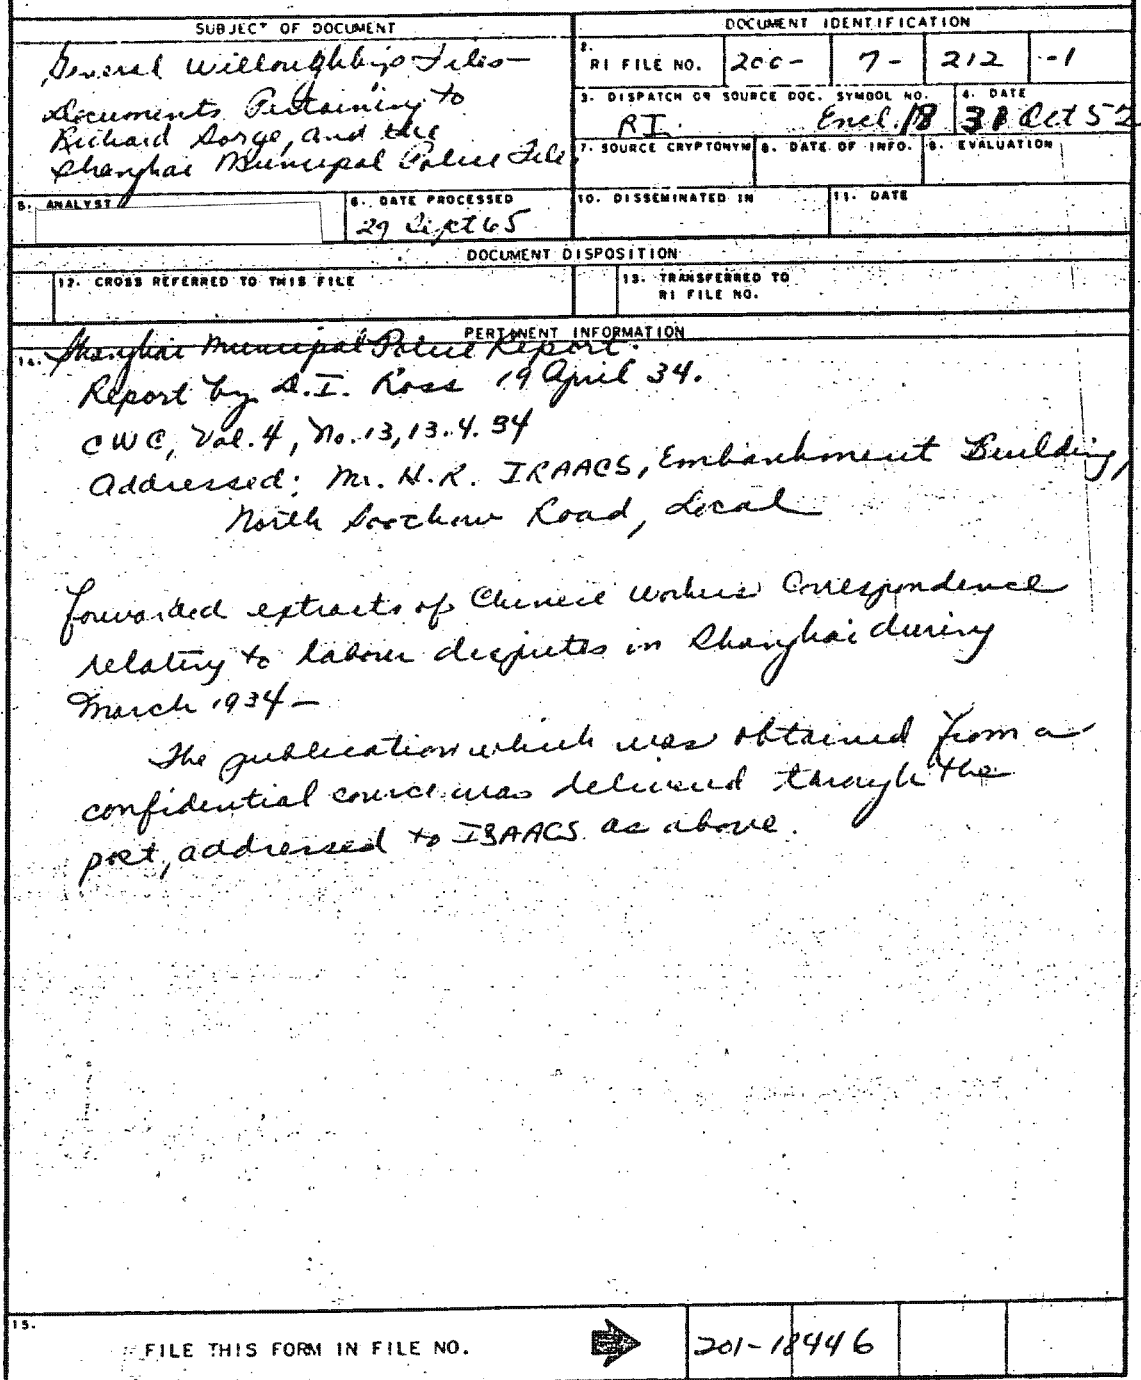 SUBJECT OF DOCUMENT
General Willoughby's Files—
Documents Pertaining to
Richard Sorge, and the
Shanghai Municipal Police Files
DOCUMENT IDENTIFICATION
2. RI FILE NO. 200- 7- 212 -1
3. DISPATCH OR SOURCE DOC. SYMBOL NO. 4. DATE
RI. Encl. 18 31 Oct 52
7. SOURCE CRYPTONYM 8. DATE OF INFO. 9. EVALUATION
5. ANALYST 6. DATE PROCESSED 10. DISSEMINATED IN 11. DATE
29 Sept 65
DOCUMENT DISPOSITION
12. CROSS REFERRED TO THIS FILE 13. TRANSFERRED TO
RI FILE NO.
PERTINENT INFORMATION
14. Shanghai Municipal Police Report.
Report by D.I. Ross 19 April 34.
CWC, Vol. 4, No. 13, 13.4.34
Addressed: Mr. H.R. ISAACS, Embankment Building,
North Soochow Road, Local
forwarded extracts of Chinese Workers Correspondence
relating to labour disputes in Shanghai during
March 1934—
The publication which was obtained from a
confidential source was delivered through the
post, addressed to ISAACS as above.
15.
FILE THIS FORM IN FILE NO. 201-18446